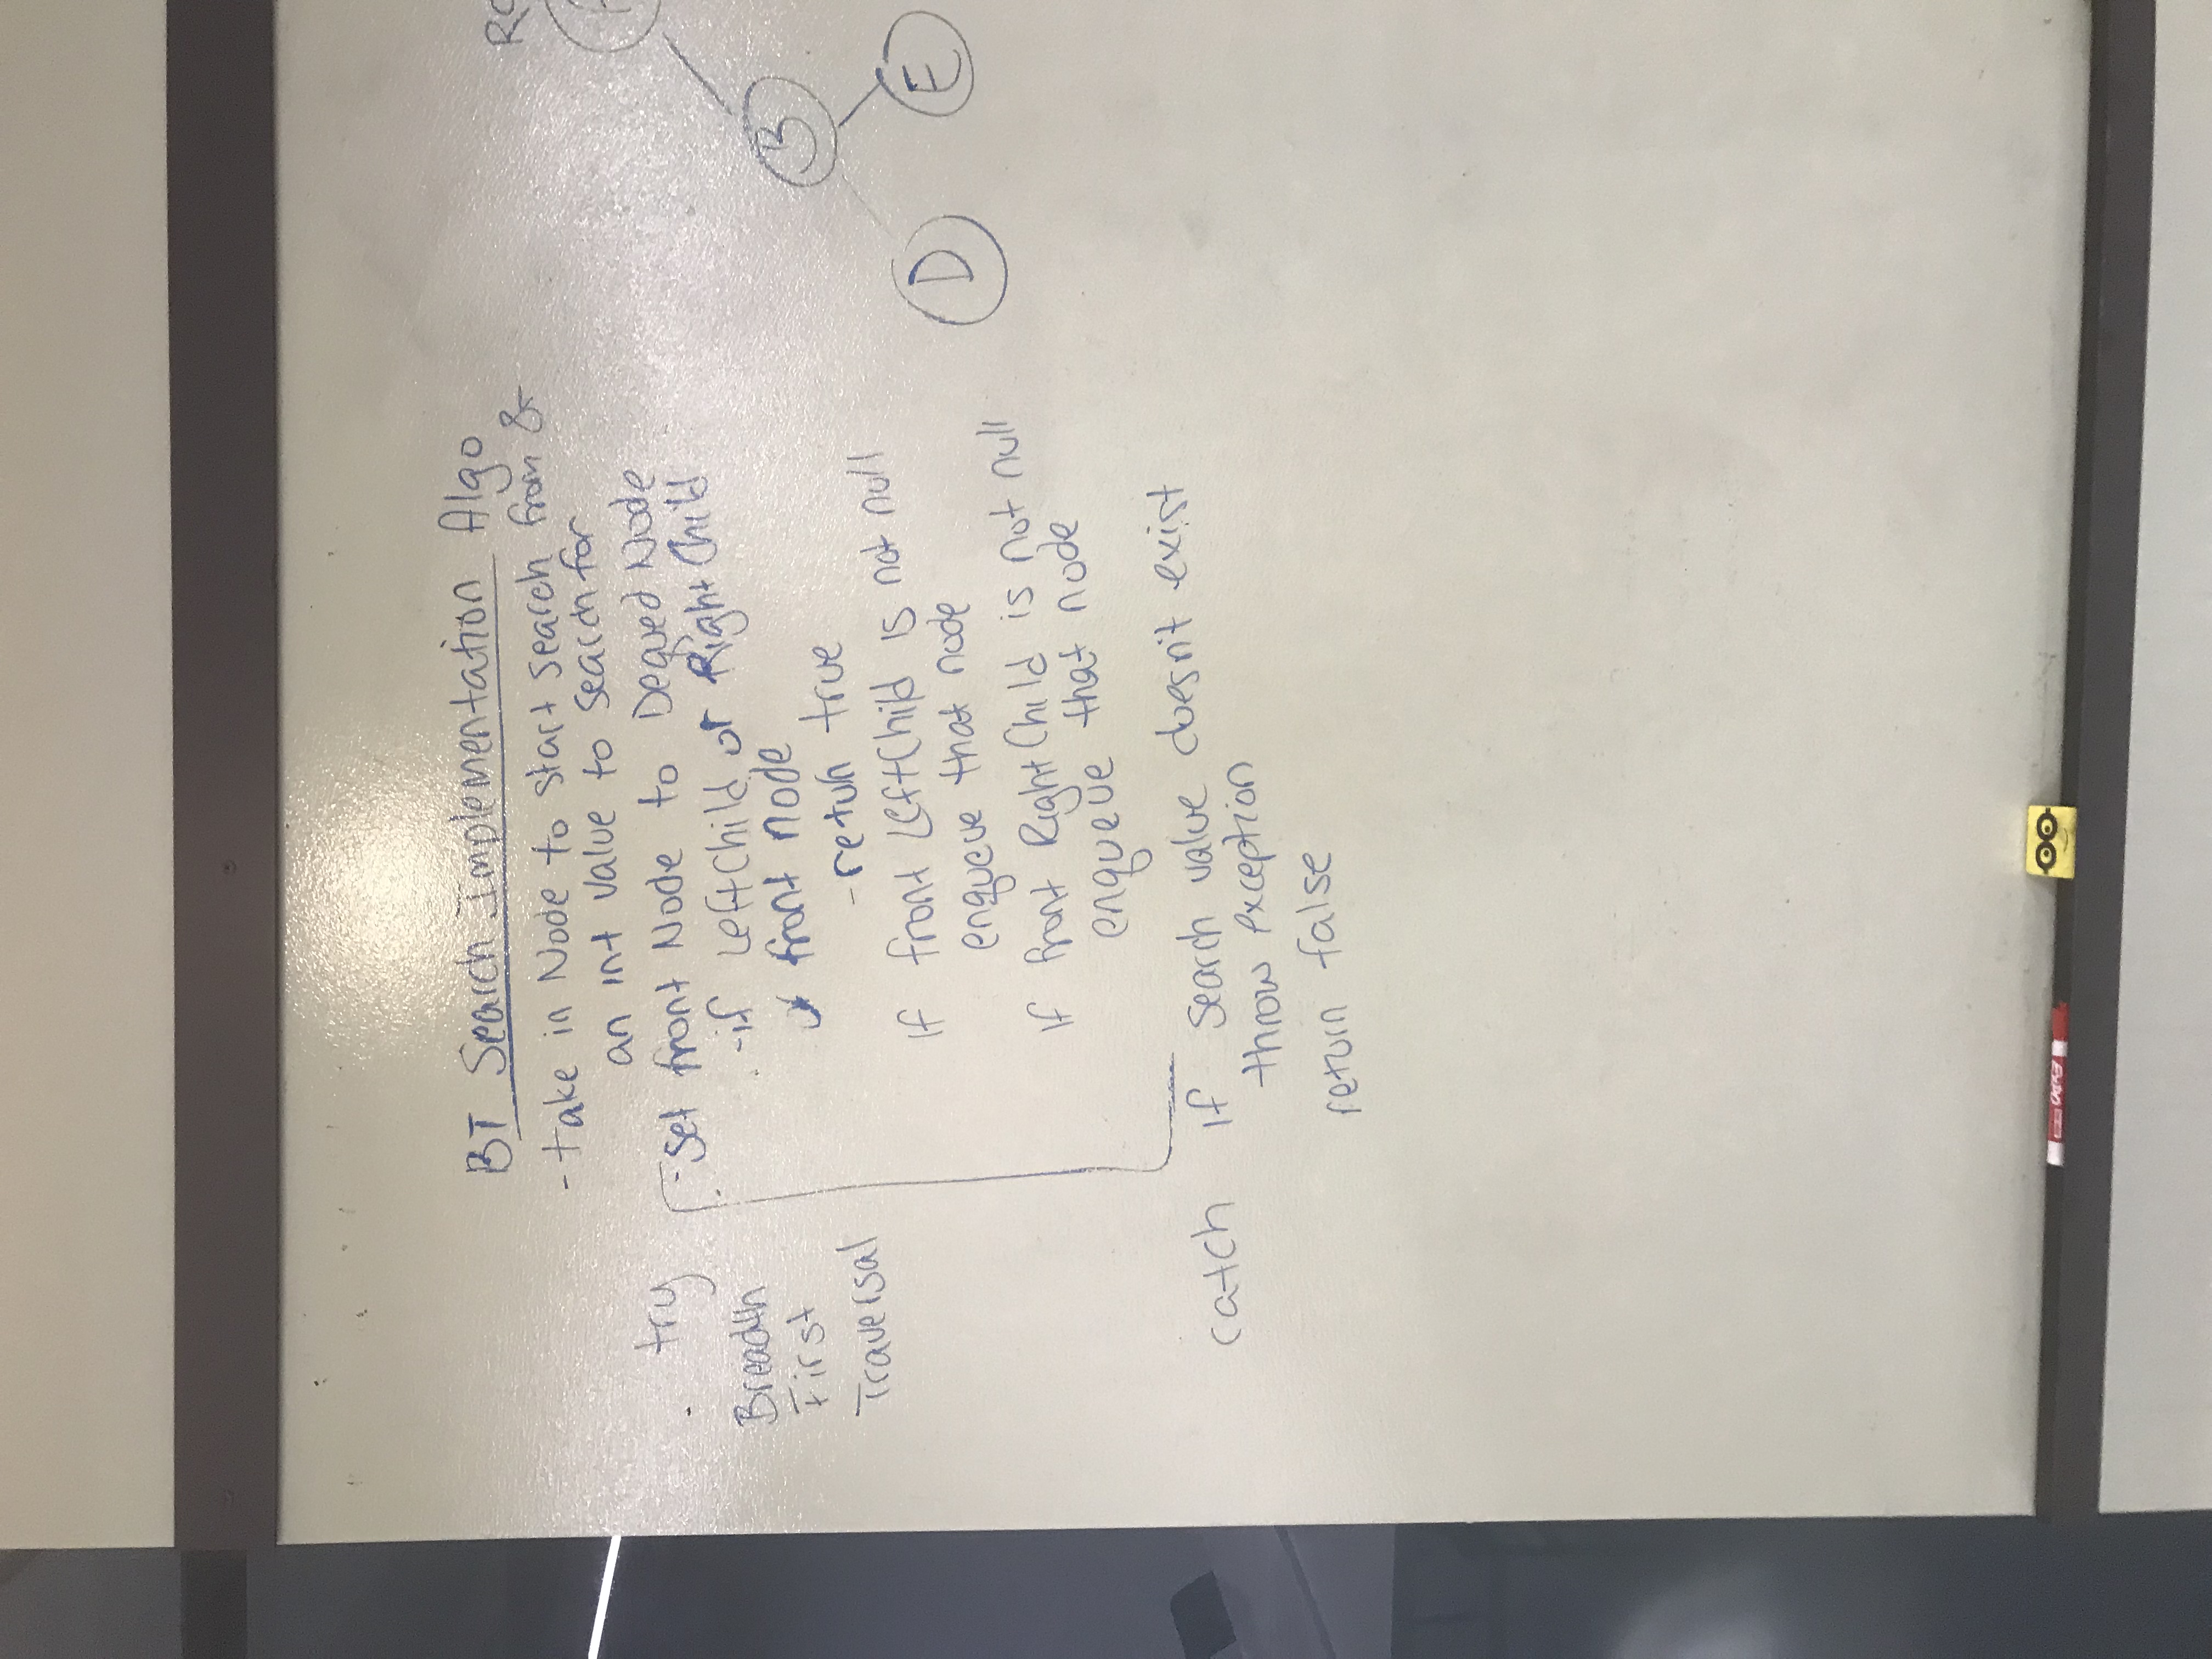 BT Search Implementation Algo
- take in Node to start search from &
an int value to search for
try
- Set front Node to Dequed Node
- if LeftChild or RightChild
front node
- return true
Breadth
First
Traversal
If front LeftChild is not null
enqueue that node
If front RightChild is not null
enqueue that node
catch if search value doesn't exist
throw exception
return false
B
D
E
EXPO